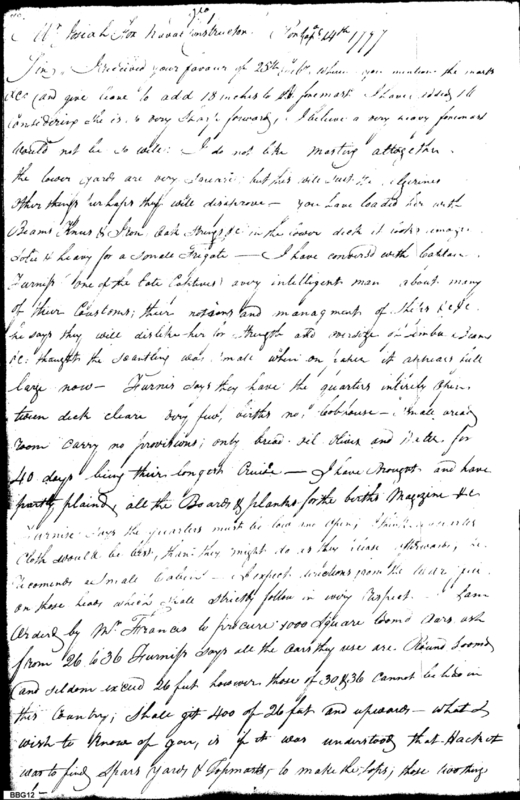 Mr Josiah Fox Naval Constructor. 14th 1797
Sir, I received your favour of 25th where you mention the masts
&c and give leave to add 18 inches to the foremast I have added 12
Considering She is so very Sharp forward, I believe a very heavy foremast
would not be so well. I do not like masting altogether
the lower yards are very Square but this will Suit the Algerines
other things perhaps they will disaprove — you have loaded her with
Beams Knees & Iron, Oak Strings &c in the lower deck it looks
Solid & heavy for a Small Frigate — I have convered with Captain
Furniss (one of the late Captives) a very intelligent man about many
of their Customs; their notions and managment of Ships &c &c.
he says they will dislike her for Strength and oversize of Timber Beams
&c. thought the Scantling was Small when on paper it appears full
large now — Furniss Says they have the quarters intirely open
tween deck cleare very few births no Cobhouse — Small bread
room carry no provisions; only bread oil Olives and Water for
40 days being their longest Cruise — I have Brought and have
partly plained, all the Boards & planks for the births Magezine &c
Furniss Says the quarters must be low and open; I think quarter
Cloth would be best, then they might do as they please afterwards, he
recomends a Small Cabin — I expect directions from the
on those heads which I Shall Strictly follow in every respect — I am
Orderd by Mr Francis to procure 1000 Square Loomd Oars ash
from 26 to 36 Furniss Says all the Oars they use are Round Loomd
and seldom exceed 26 feet however those of 30 & 36 Cannot be had in
this Country; Shall get 400 of 26 feet and upwards — what I
wish to know of you, is if it was understood that Hacket
was to find Spars Yards & Topmasts, to make the tops; those two things
BBG12